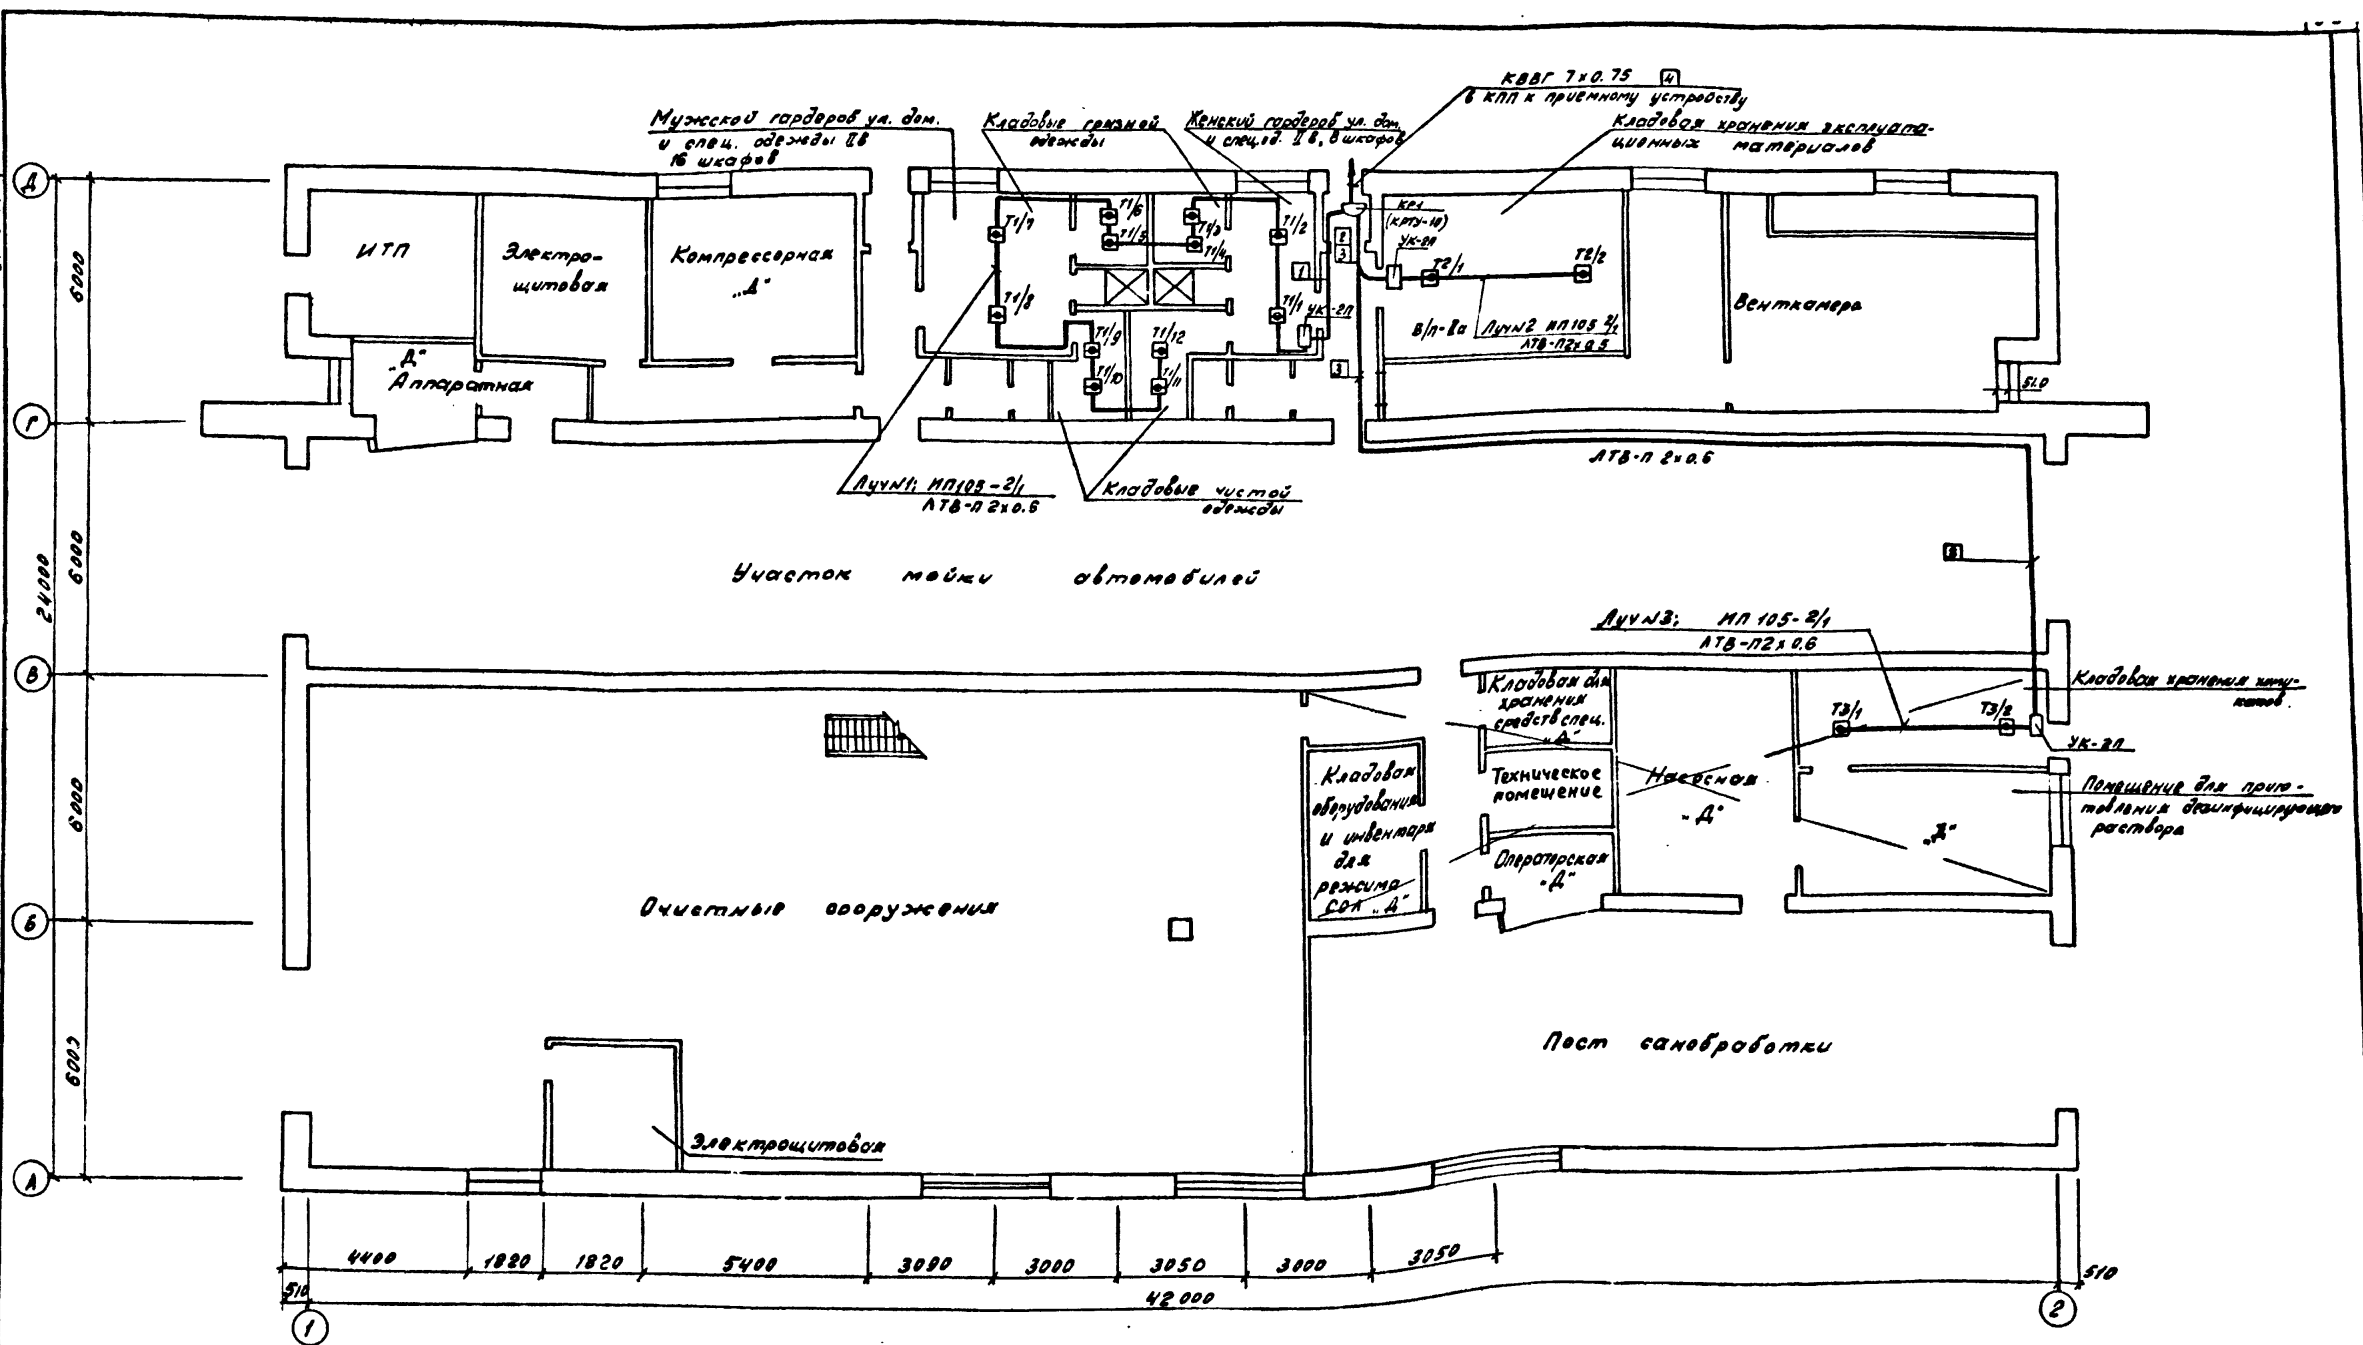 КВВГ 7х0.75 4
в КПП к приемному устройству
Мужской гардероб ул. дом.
и спец. одежды IIв
16 шкафов
Кладовые грязной
одежды
Женский гардероб ул. дом.
и спец.од. IIв, 8 шкафов
Кладовая хранения эксплуата-
ционных материалов
Д
ИТП
Электро-
щитовая
Компрессорная
„Д“
Т1/7
Т1/6
Т1/5
Т1/3
Т1/4
Т1/2
КР1
(КРТУ-10)
УК-2П
2
3
1
Т2/1
Т2/2
Венткамера
Т1/8
Т1/1
УК-2П
В/п-IIа
Луч№2 ИП105 2/1
ЛТВ-П2х0.5
Т1/9
Т1/12
Т1/10
Т1/11
3
„Д“
Аппаратная
510
Г
6000
ЛТВ-П 2х0.6
Луч№1; ИП105-2/1
ЛТВ-П 2х0.6
Кладовые чистой
одежды
Участок мойки автомобилей
6000
24000
Луч№3; ИП 105-2/1
ЛТВ-П2х0.6
В
Кладовая для
хранения
средств спец.
„Д“
Т3/1
Т3/2
Кладовая хранения
УК-2П
Кладовая
оборудования
и инвентаря
для
режима
СОЛ „Д“
Техническое
помещение
Насосная
„Д“
Помещение для приго-
товления дезинфицирующего
раствора
„Д“
Операторская
„Д“
6000
Очистные сооружения
Б
6000
Пост санобработки
Электрощитовая
А
4400 1820 1820 5400 3090 3000 3050 3000 3050
510 42 000 510
1 2